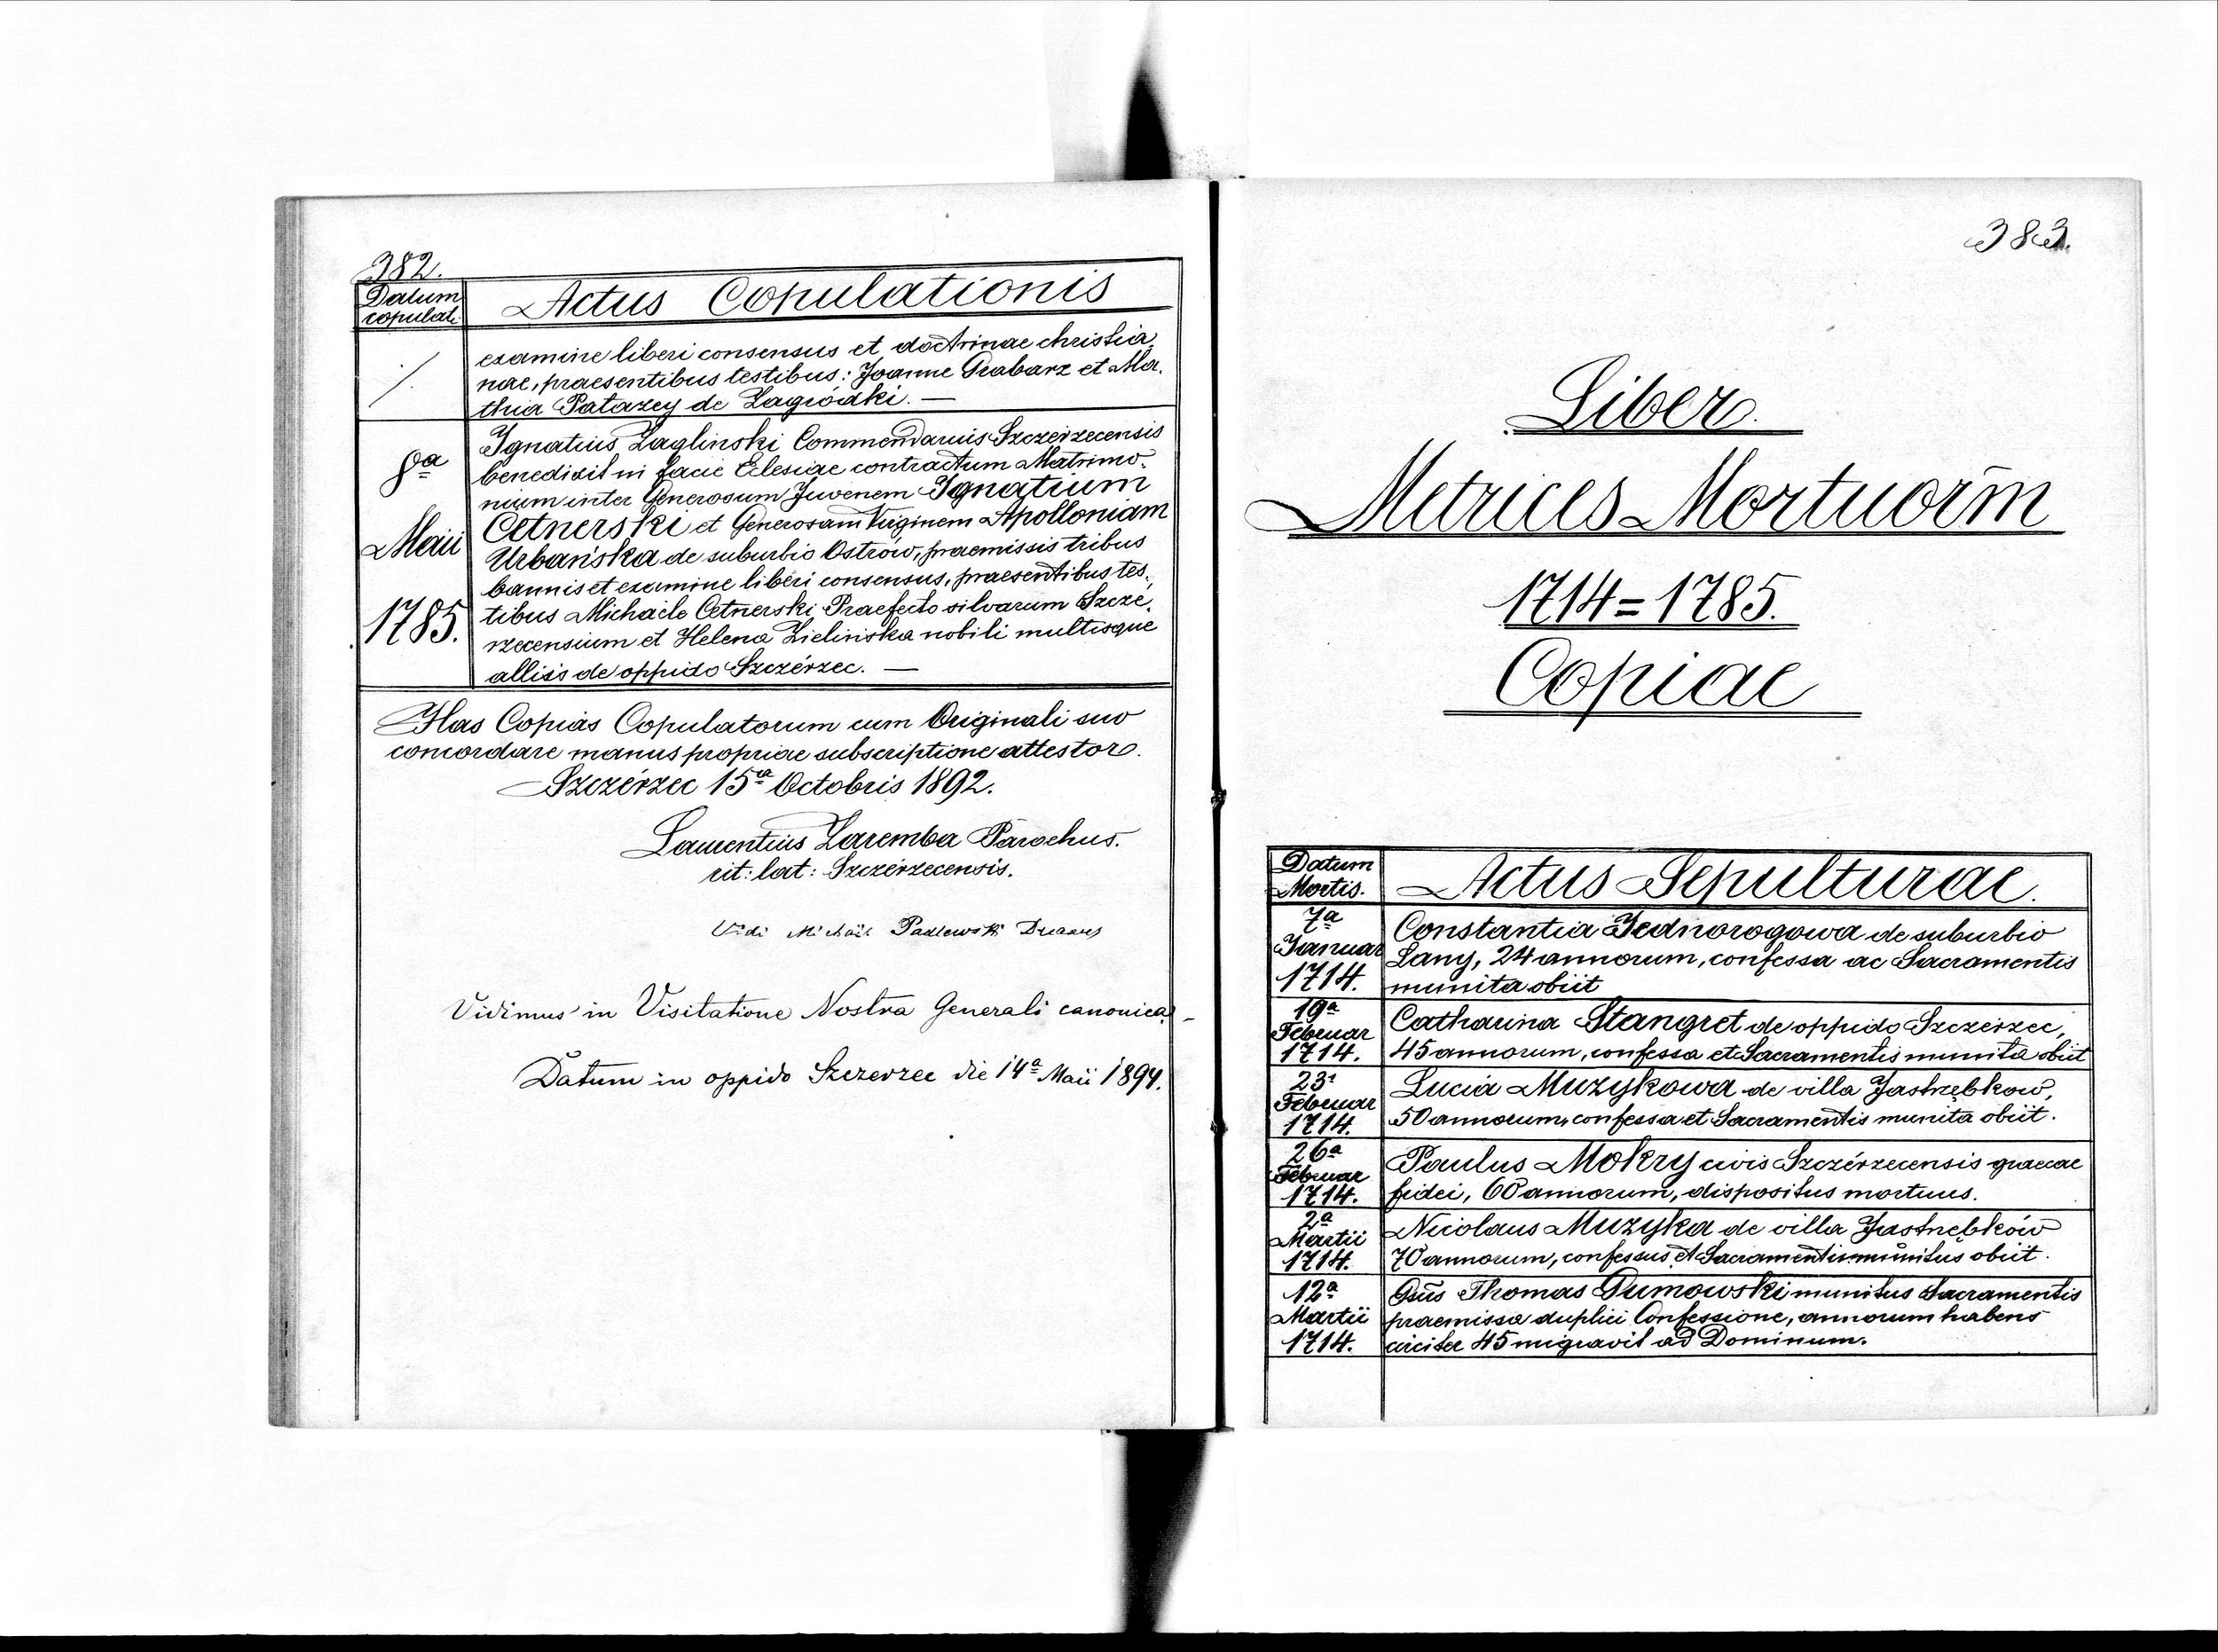 382.
Datum
copulati
Actus Copulationis
examine liberi consensus et doctrinae christia-
nae, praesentibus testibus: Joanne Grabarz et Ma-
thia Patazey de Zagródki. —
8a
Maii
1785.
Ignatius Zaglinski Commendarius Szczérzecensis
benedixit in facie Eclesiae contractum Matrimo-
nium inter Generosum Juvenem Ignatium
Cetnerski et Generosam Virginem Apolloniam
Urbańska de suburbio Ostrów, praemissis tribus
bannis et examine liberi consensus, praesentibus tes-
tibus Michaele Cetnerski Praefecto silvarum Szczé-
rzecensium et Helena Zielińska nobili multisque
alliis de oppido Szczérzec. —
Has Copias Copulatorum cum Originali suo
concordare manus propriae subscriptione attestor.
Szczérzec 15a Octobris 1892.
Laurentius Zaremba Parochus.
rit: lat: Szczérzecensis.
Vidi Michaël Decanus
Vidimus in Visitatione Nostra Generali canonica -
Datum in oppido Szczerzec die 14a Maii 1894.
383.
Liber
Metrices Mortuorm
1714=1785.
Copiae
Datum
Mortis.
Actus Sepulturae.
7a
Januar
1714.
Constantia Jednorogowa de suburbio
Lany, 24 annorum, confessa ac Sacramentis
munita obiit
19a
Februar
1714.
Catharina Stangret de oppido Szczérzec,
45 annorum, confessa et Sacramentis munita obiit
23a
Februar
1714.
Lucia Muzykowa de villa Jastrzębków,
50 annorum, confessa et Sacramentis munita obiit.
26a
Februar
1714.
Paulus Mokry civis Szczérzecensis graecae
fidei, 60 annorum, dispositus mortuus.
2a
Martii
1714.
Nicolaus Muzyka de villa Jastrzębków
70 annorum, confessus et Sacramentis munitus obiit.
12a
Martii
1714.
Gsūs Thomas Dumowski munitus Sacramentis
praemissa duplici Confessione, annorum habens
circiter 45 migravit ad Dominum.